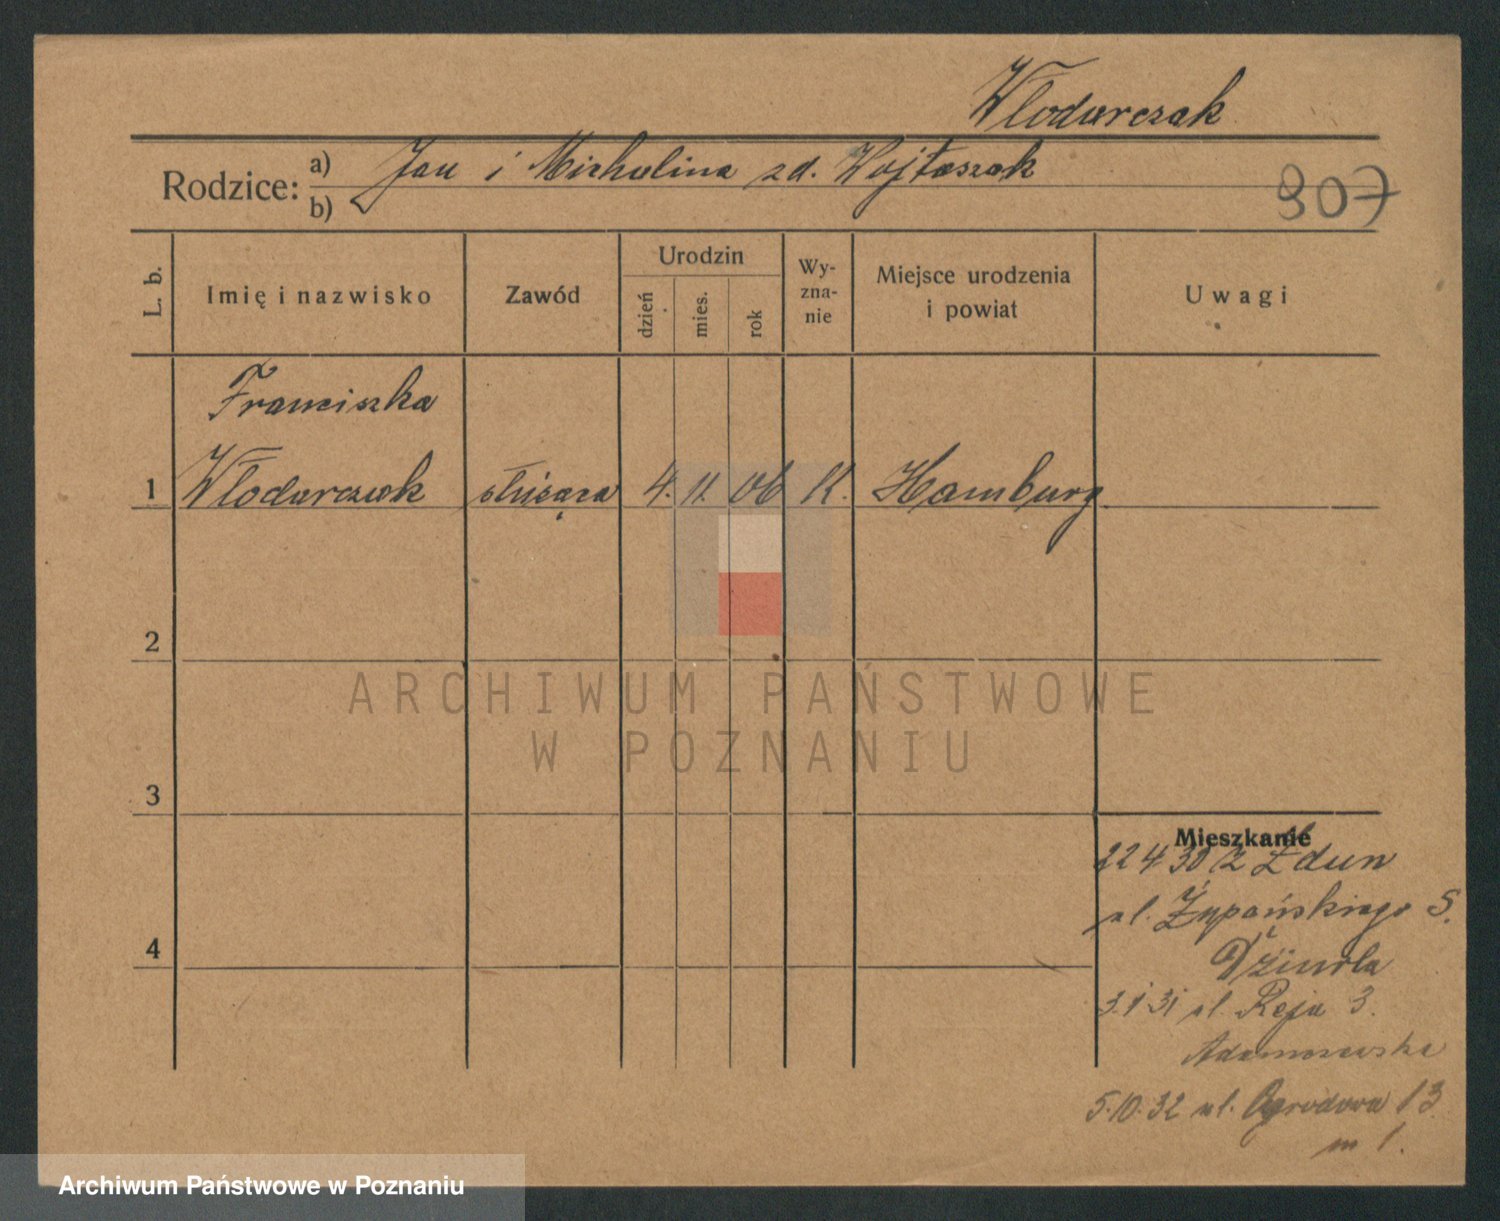 Włodarczak
Rodzice: a) Jan i Michalina zd. Wojtaszak
b)
907
L. b.
Imię i nazwisko
Zawód
Urodzin
dzień
mies.
rok
Wy-
zna-
nie
Miejsce urodzenia
i powiat
Uwagi
Franciszka
1 Włodarczak służąca 4. 11. 06 K. Hamburg
2
3
4
Mieszkanie
22 4 30 z Zdun
ul. Żupańskiego 5.
3.1.31 ul. Reja 3.
Adamszewska
5.10.32 ul. Ogrodowa 13
m 1.
ARCHIWUM PAŃSTWOWE
W POZNANIU
Archiwum Państwowe w Poznaniu